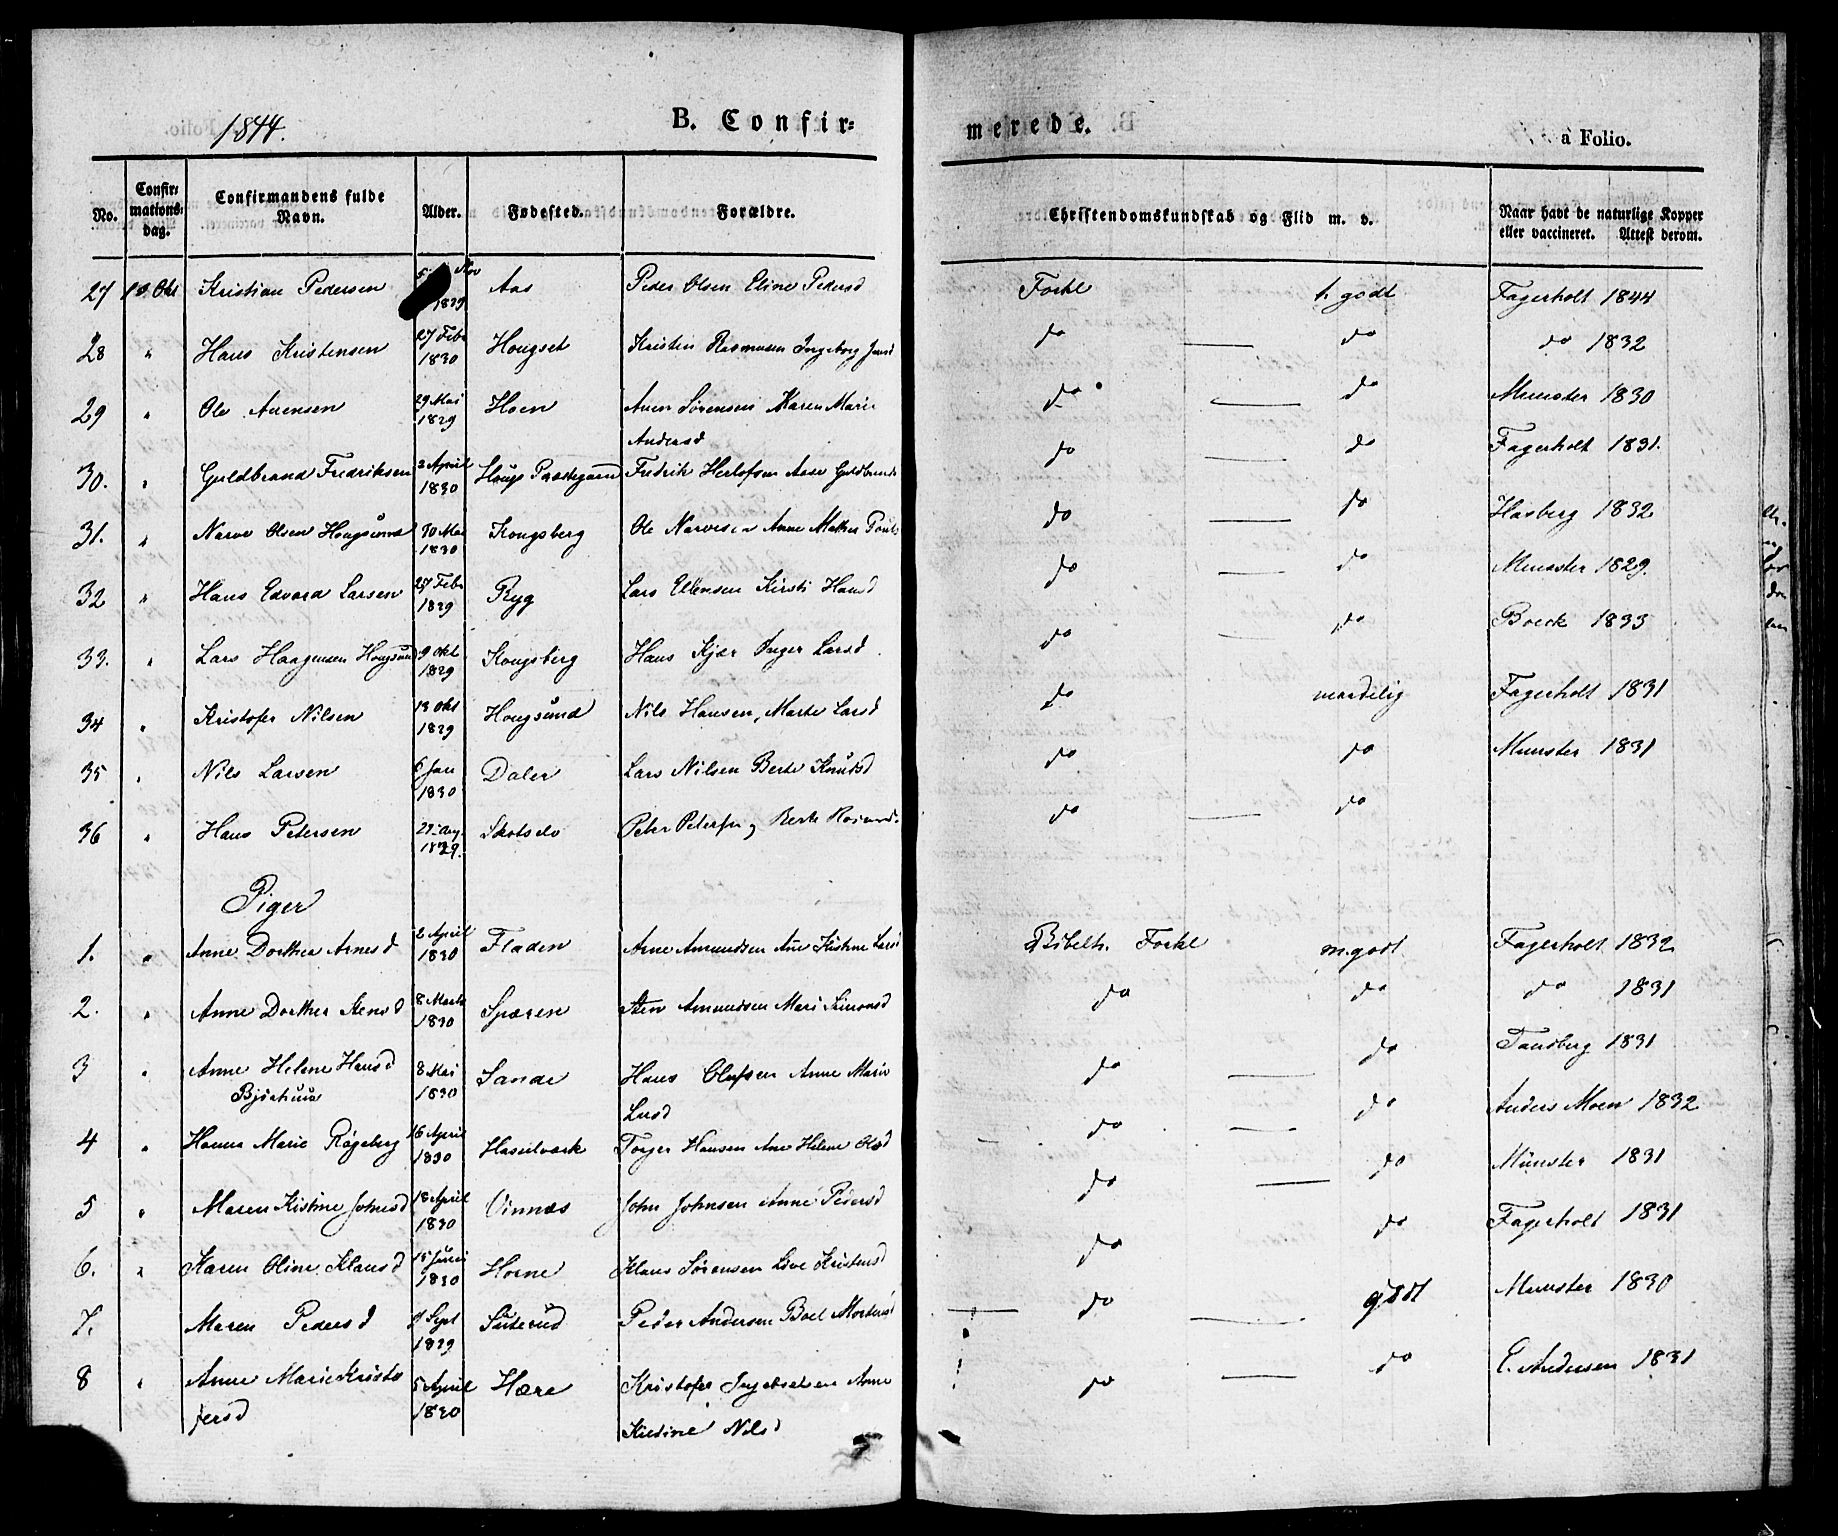 1844.
B. Confir=
merede.
a Folio.
No. Confir=mations=dag. Confirmandens fulde Navn. Alder. Fødested. Forældre. Christendomskundskab og Flid m. v. Naar havt de naturlige Kopper eller vaccineret. Attest derom.
27 Okt Kristian Pedersen Nov 1829 Aas Peder Olsen Eline Pedersd Forkl t. godt Fagerholt 1844
28 " Hans Kristensen 27 Feb 1830 Hougset Kristen Rasmusen Ingeborg Jensd do do do 1832
29 " Ole Arensen 29 Mai 1829 Hoen Aren Sørensen Karen Marie
Andersd do do Munster 1830
30. " Guldbrand Fredriksen 2 April 1830 Hougs Prestegaard Fredrik Herlofsen Aase Guldbrands do do Fagerholt 1831.
31. " Narve Olsen Hougsund 30 Mai 1830 Kongsberg Ole Narvesen Anne Mathea Pouls do do Hasberg 1832
32 " Hans Edvard Larsen 27 Feb 1829 Ryg Lars Ellensen Kirsti Hansd do do Munster 1829.
33. " Lars Haagensen Hougsund 9 Okt 1829 Kongsberg Hans Kjær Inger Larsd do do Boeck 1833
34 " Kristofer Nilsen 13 Okt 1829 Hougsund Nils Hansen, Marte Larsd do maadelig Fagerholt 1831
35 " Nils Larsen 6 Jan 1830 Daler Lars Nilsen Berte Knudsd do do Munster 1831
36 " Hans Petersen 1829. Skotselv Peter Petersen og Berte do do
Piger
1. " Anne Dorthea Arnesd 2 April 1830 Fladen Arne Amundsen Ane Kistine Larsd Bibelh. Forkl m.godt Fagerholt 1832
2. " Anne Dorthea Stensd 8 Marts 1830 Spæren Sten Amundsen Mari Simonsd do do do 1831
3 " Anne Helene Hansd
Bjørhuus 8 Mai 1830 Sande Hans Olufsen Anne Marie
Larsd do do Tandberg 1831
4 " Hanna Marie Røgeberg 16 April 1830 Hasselværk Torger Hansen Ane Helene Olsd do do Anders Moen 1832
5 " Maren Kistine Johnsd 18 April 1830 Vinnæs John Johnsen Anne Pedersd do do Münster 1831
6. " Karen Oline Klausd 15 Juni 1830 Horne Klaus Sørensen Live Kristensd do do Fagerholt 1831
7. " Maren Pedersd Sept 1829 Süterud Peder Andersen Boel Mortensd do godt Munster 1830
8 " Anne Marie Kristo
fersd 5 April 1830 Hære Kristofer Ingebretsen Anne
Kistine Nilsd do do C. Andersen 1831